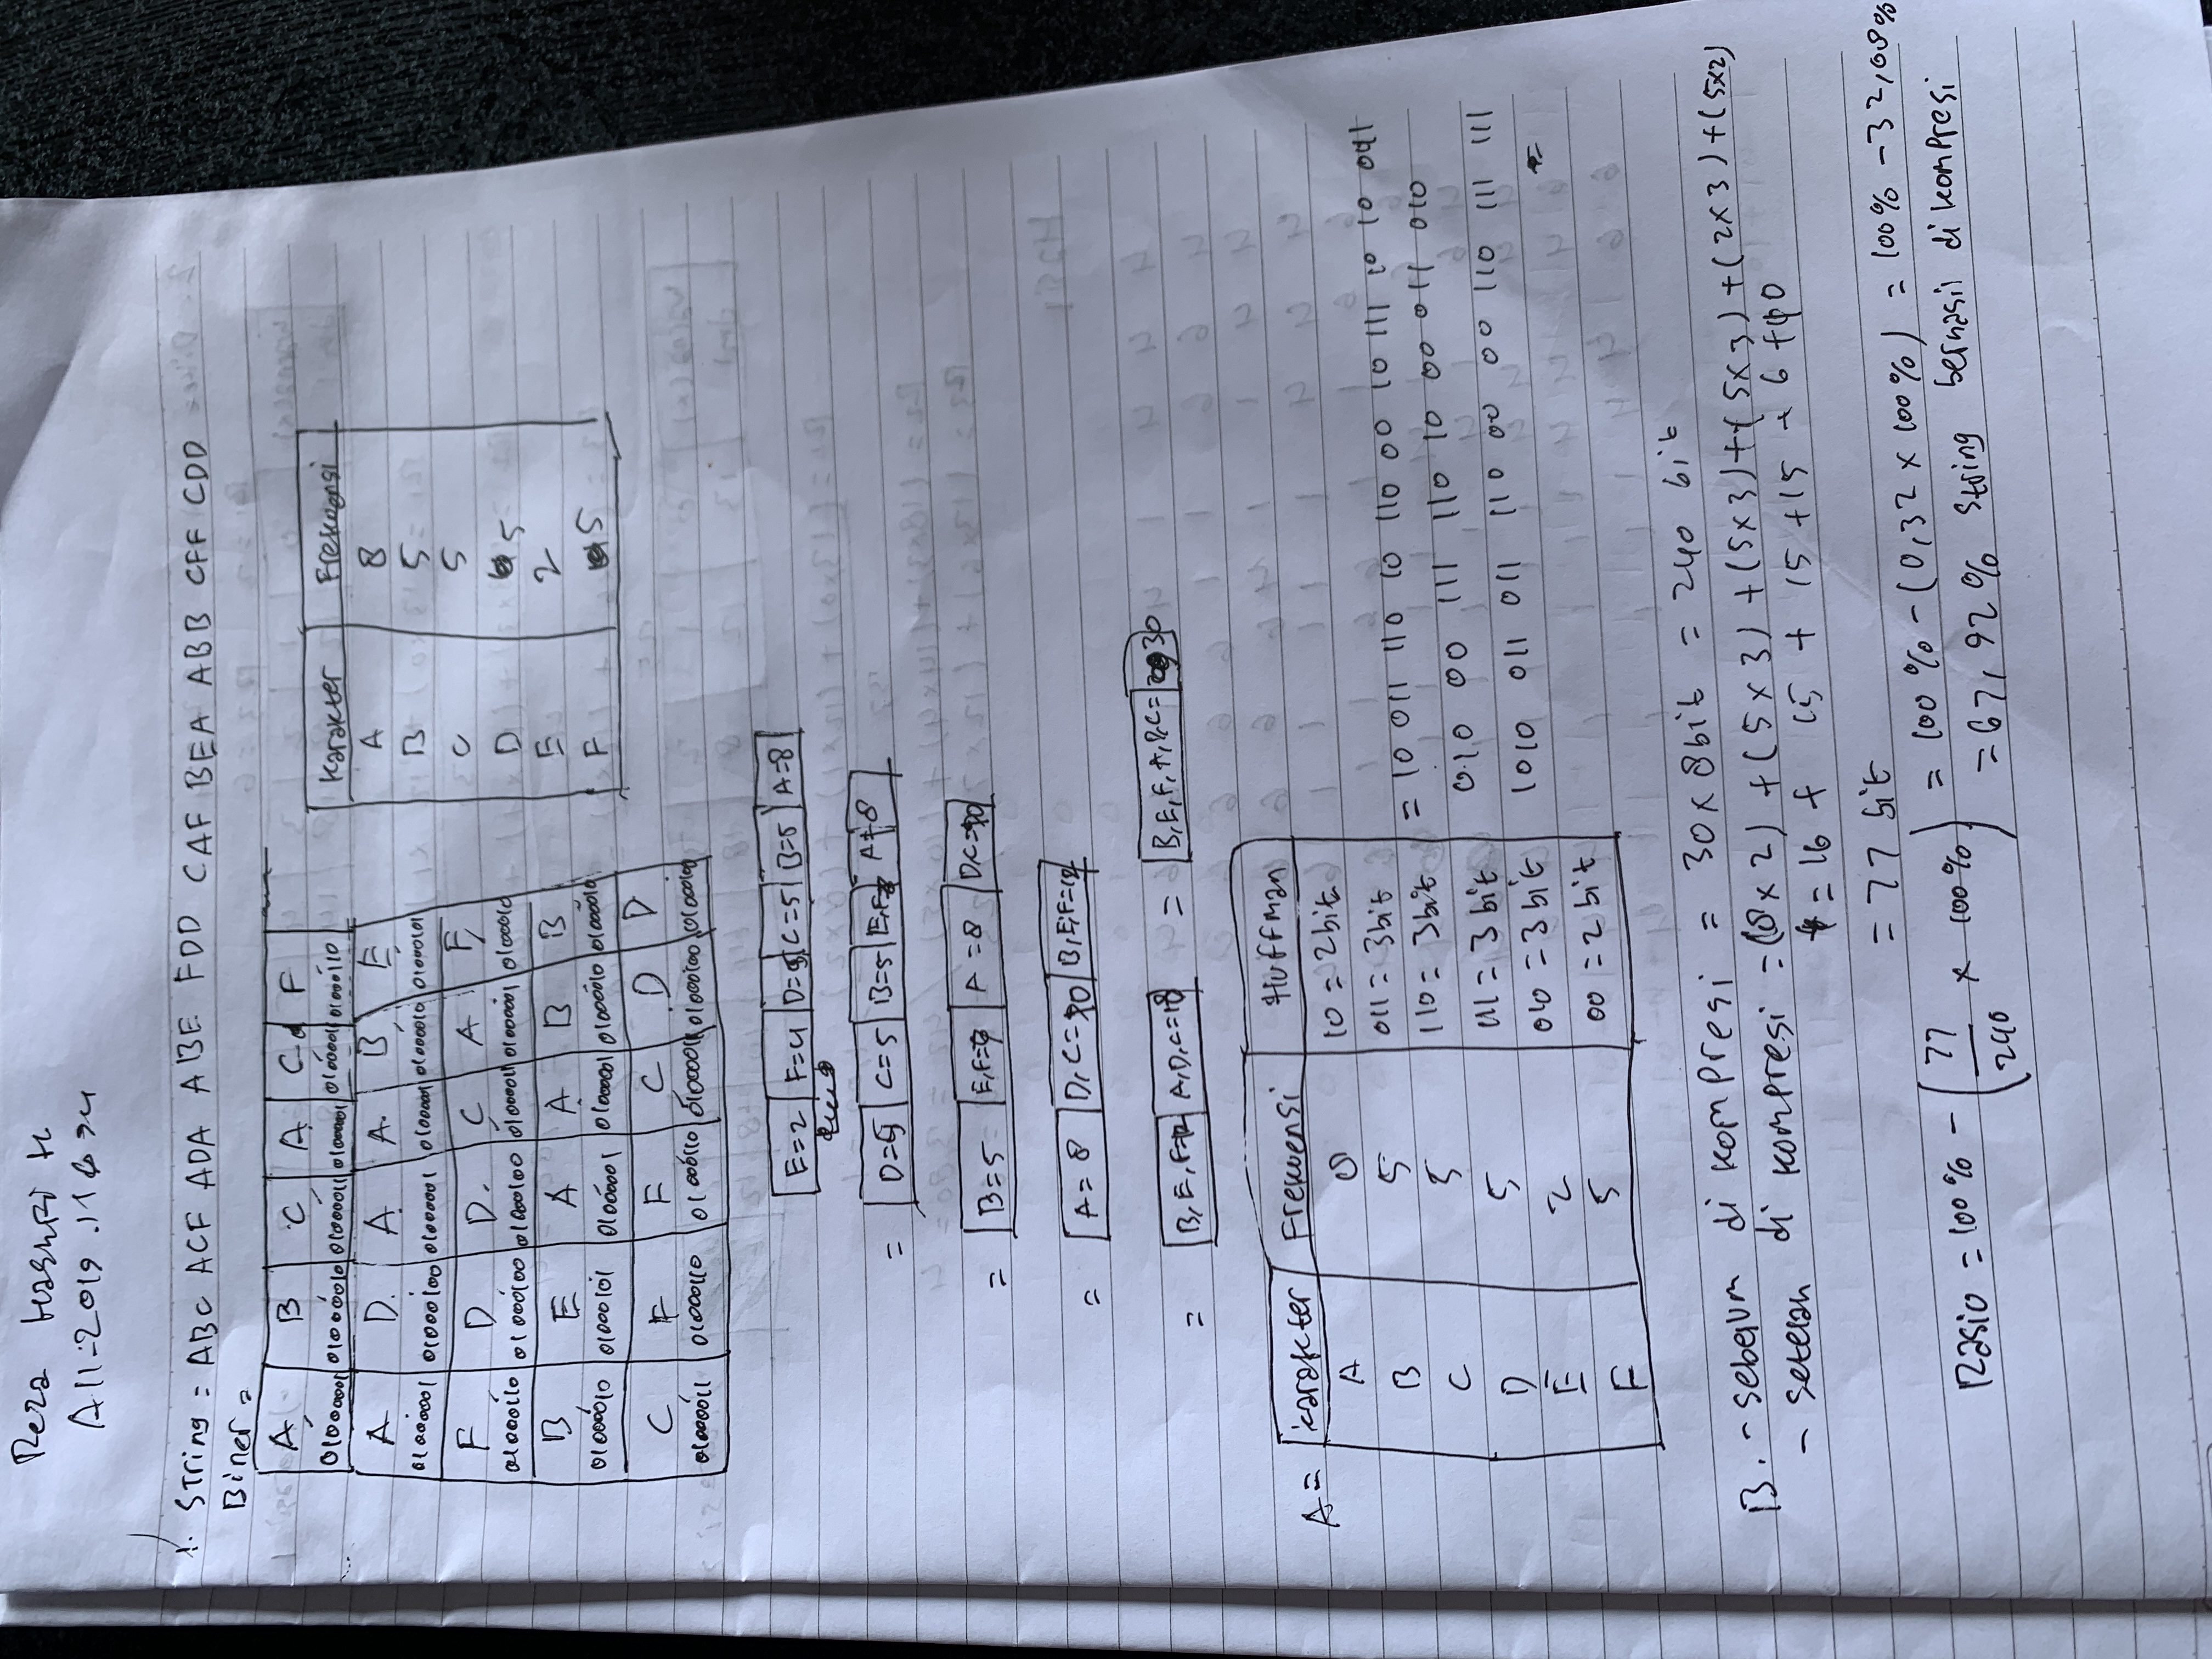 A11.2019.
1. String = ABC ACF ADA ABE FDD CAF BEA ABB CFF CDD
Biner =
A B C A C F
01000001 01000010 01000011 01000001 01000011 01000110
A D. A A. B E
01000001 01000100 01000001 01000001 01000010 01000101
F D D. C A F
01000110 01000100 01000100 01000011 01000001
B E A A B B
01000010 01000101 01000001 01000001 01000010 01000010
C F F C D D
01000011 01000110 01000110 01000011 01000100 01000100
Karakter Frekuensi
A 8
B 5
C 5
D 5
E 2
F 5
E=2 F=4 D=5 C=5 B=5 A=8
= D=5 C=5 B=5 E,F= A=8
= B=5 E,F= A=8 D,C=10
= A=8 D,C=10 B,E,F=12
= B,E,F=12 A,D,C=18 = B,E,F,A,D,C= 30
A = Karakter Frekuensi Huffman
A 8 10 = 2bit
B 5 011 = 3bit
C 5 110 = 3bit
D 5 111 = 3 bit
E 2 010 = 3 bit
F 5 00 = 2 bit
= 10 011 110 10 110 00 10 111 10 10 011
010 00 111 110 10 00 011 010
1010 011 011 110 00 00 110 111 111
=
B. - sebelum di kompresi = 30 x 8bit = 240 bit
- setelah di kompresi = (8 x 2) + (5 x 3) + (5x3) + (5x3) + (2x3) + (5x2)
= 16 + 15 + 15 + 15 + 6 + 10
= 77 bit
Rasio = 100% - (77/240 x 100%) = 100% - (0,32 x 100%) = 100% - 32,08%
= 67,92% string berhasil di kompresi